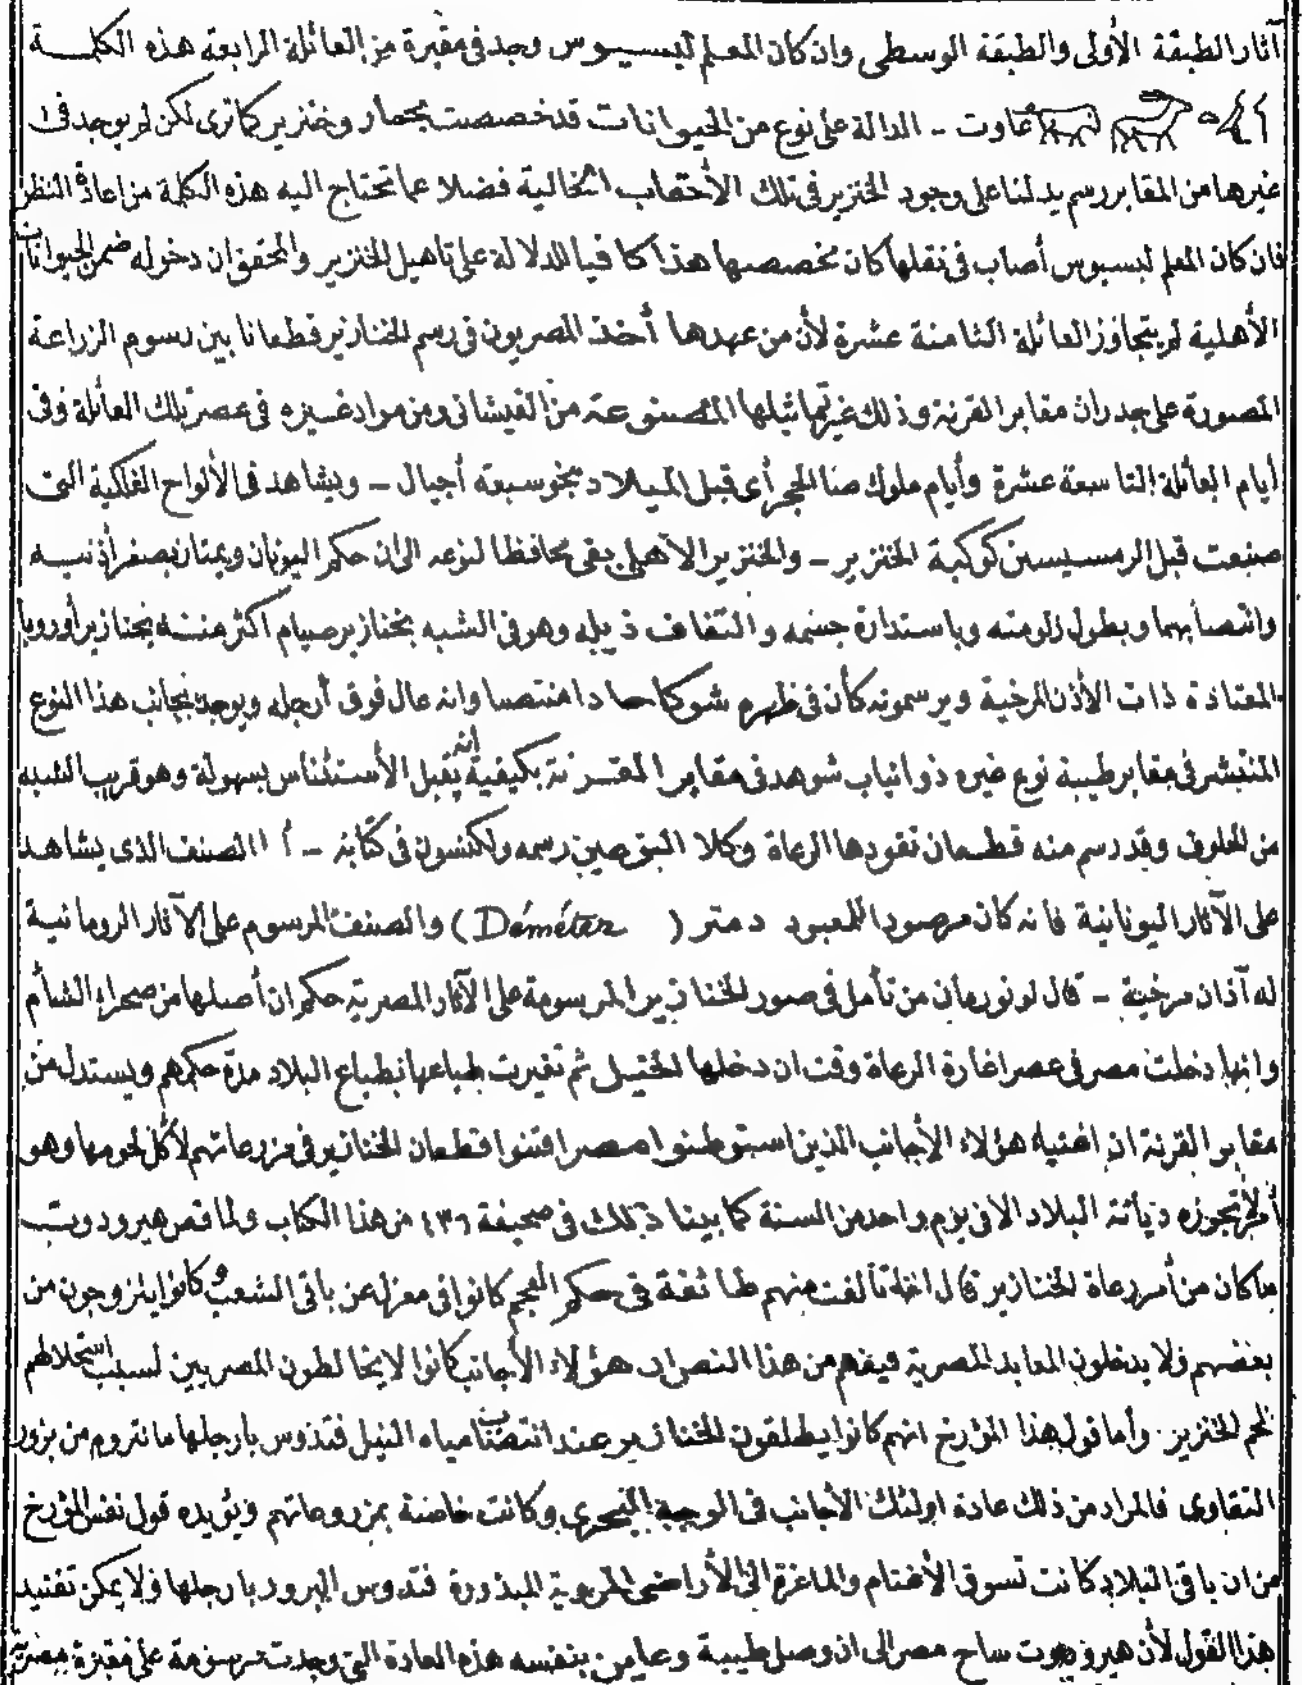 آثار الطبقة الأولى والطبقة الوسطى وان كان المعلم لبسيوس وجد فى مقبرة من العائلة الرابعة هذه الكلمة
عاوت - الدالة على نوع من الحيوانات قد خصصت بحمار وخنزير كما ترى لكن لم يوجد فى
غيرها من المقابر رسم يدلنا على وجود الخنزير فى تلك الأحقاب الخالية فضلا عما تحتاج اليه هذه الكلمة من اعادة النظر
فان كان المعلم لبسيوس أصاب فى نقلها كان مخصصها هذا كافيا للدلالة على تاهيل الخنزير والمحقق ان دخوله ضمن الحيوانات
الأهلية لم يتجاوز العائلة الثامنة عشرة لأن من عهدها أخذ المصريون فى رسم الخنازير قطعانا بين رسوم الزراعة
المصورة على جدران مقابر القرنة وذلك غير تماثيلها المصنوعة من القيشانى ومن مواد غيره فى عصر تلك العائلة وفى
أيام العائلة التاسعة عشرة وأيام ملوك صا الحجر أى قبل الميلاد بنحو سبعة أجيال - ويشاهد فى الألواح الفلكية التى
صنعت قبل الرمسيسين كوكبة الخنزير - والخنزير الأهلى بقى محافظا لنوعه الى ان حكم اليونان ويمتاز بصغر أذنيه
وانتصابهما وبطول زلومته وباستدارة جسمه والتفاف ذيله وهو فى الشبه بخنازير صيام اكثر منه بخنازير أوروپا
المعتادة ذات الأذن المرخية ويرسمونه كأن فى ظهره شوكا حادا منتصبا وانه عال فوق أرجله ويوجد بجانب هذا النوع
المنتشر فى مقابر طيبة نوع غيره ذو انياب شوهد فى مقابر القرنة بكيفية انه يقبل الأستئناس بسهولة وهو قريب الشبه
من الحلوف وقد رسم منه قطعان تقودها الرعاة وكلا النوعين رسمه ولكنسون فى كتابه - أما الصنف الذى يشاهد
على الآثار اليونانية فانه كان مرصودا للمعبود دمتر ( Déméter ) والصنف المرسوم على الآثار الرومانية
له آذان مرخية - قال لونورمان من تأمل فى صور الخنازير المرسومة على الآثار المصرية حكم ان أصلها من صحراء الشأم
وانها دخلت مصر فى عصر اغارة الرعاة وقت ان دخلها الخيل ثم تغيرت طباعها بطباع البلاد مدة حكمهم ويستدل من
مقابر القرنة ان اغنياء هؤلاء الأجانب الذين استوطنوا مصر اقتنوا قطعان الخنازير فى مزروعاتهم لأكل لحومها وهو
أمر لم تجوزه ديانة البلاد الا فى يوم واحد من السنة كما بينا ذلك فى صحيفة ٤٣٦ من هذا الكتاب ولما قص هيرودوت
ما كان من أمر رعاة الخنازير قال انه تألفت منهم طائفة فى حكم العجم كانوا فى معزل عن باقى الشعب وكانوا يتزوجون من
بعضهم ولا يدخلون المعابد المصرية فيفهم من هذا النص ان هؤلاء الأجانب كانوا لا يخالطون المصريين لسبب استحلالهم
لحم الخنزير. وأما قول هذا المؤرخ انهم كانوا يطلقون الخنازير عند انتضاب مياه النيل فتدوس بارجلها ما تروم من بزور
التقاوى فالمراد من ذلك عادة اولئك الأجانب فى الوجه البحرى وكانت خاصة بمزروعاتهم ويؤيده قول نفس المؤرخ
من ان باقى البلاد كانت تسوق الأغنام والماعزة الى الأراضى المروية المبذورة فتدوس البزور بارجلها ولا يمكن تفنيد
هذا القول لأن هيرودوت ساح مصر الى ان وصل طيبة وعاين بنفسه هذه العادة التى وجدت مرسومة على مقبرة مصرية